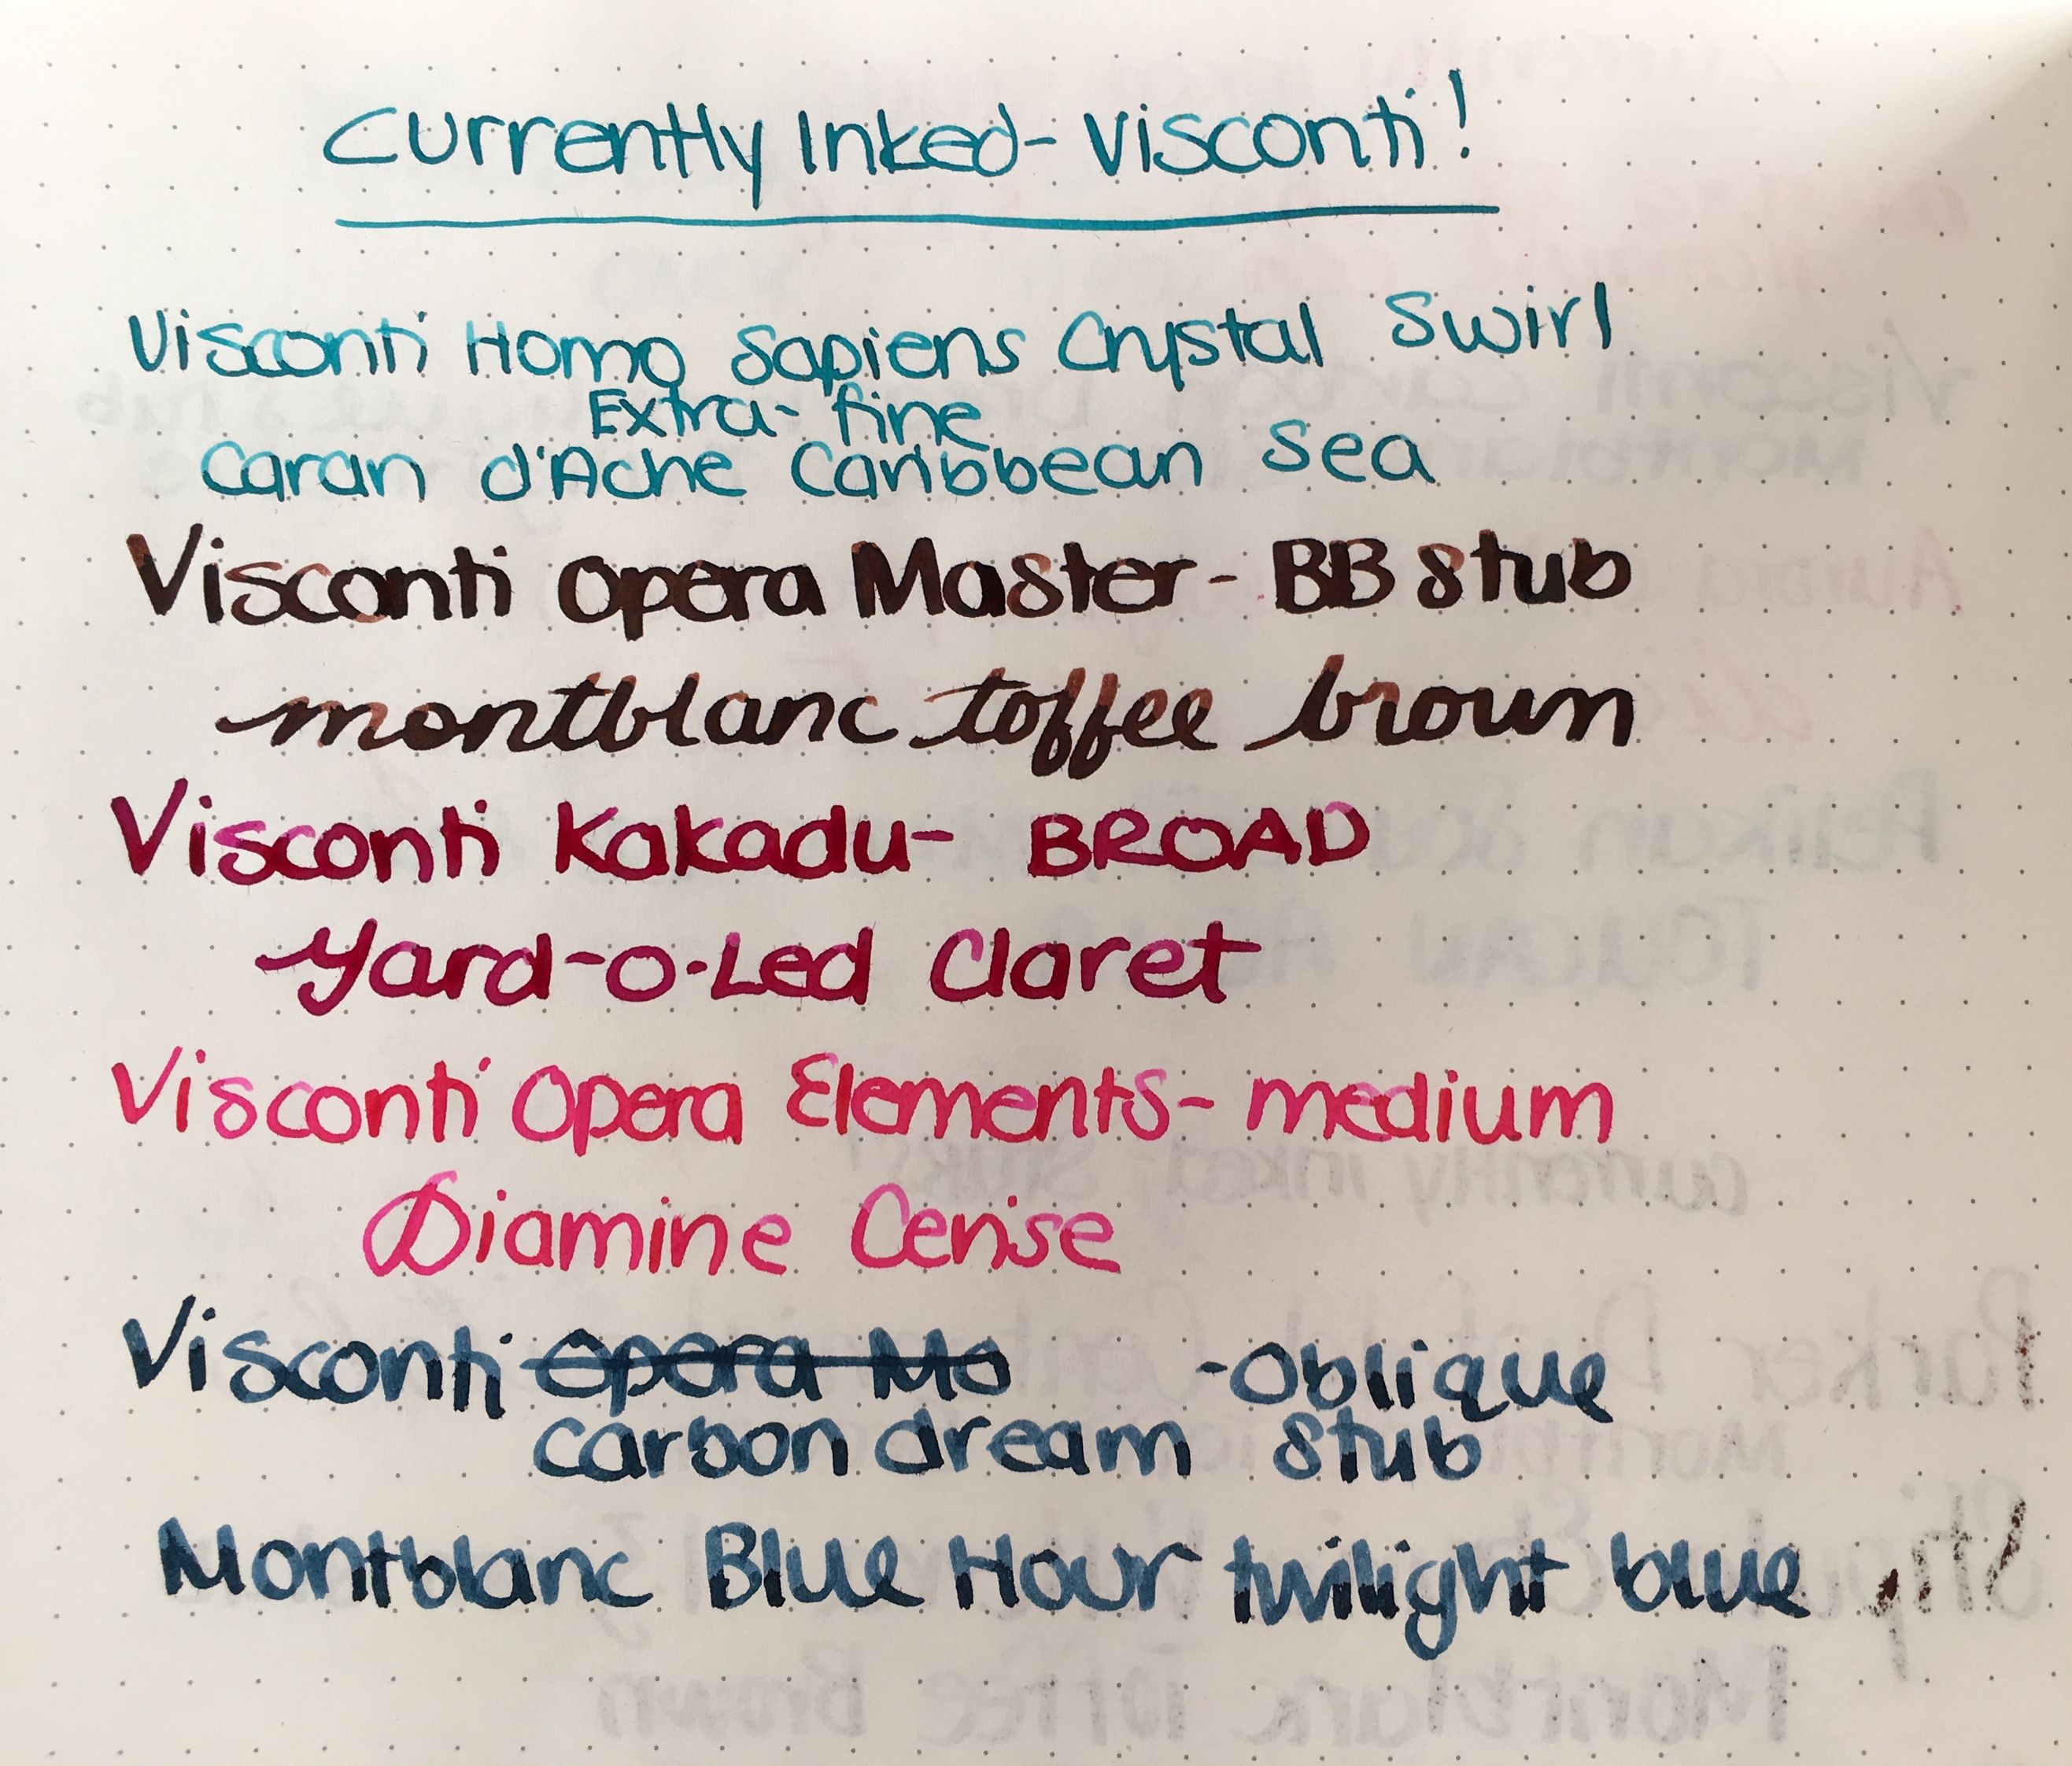 Currently Inked- Visconti!
Visconti Homo Sapiens Crystal Swirl
Extra-fine
Caran d'Ache Caribbean Sea
Visconti Opera Master - BB stub
montblanc toffee brown
Visconti Kakadu- BROAD
Yard-o-Led Claret
Visconti Opera Elements- medium
Diamine Cerise
Visconti Opera Ma -Oblique
carbon dream stub
Montblanc Blue Hour twilight blue